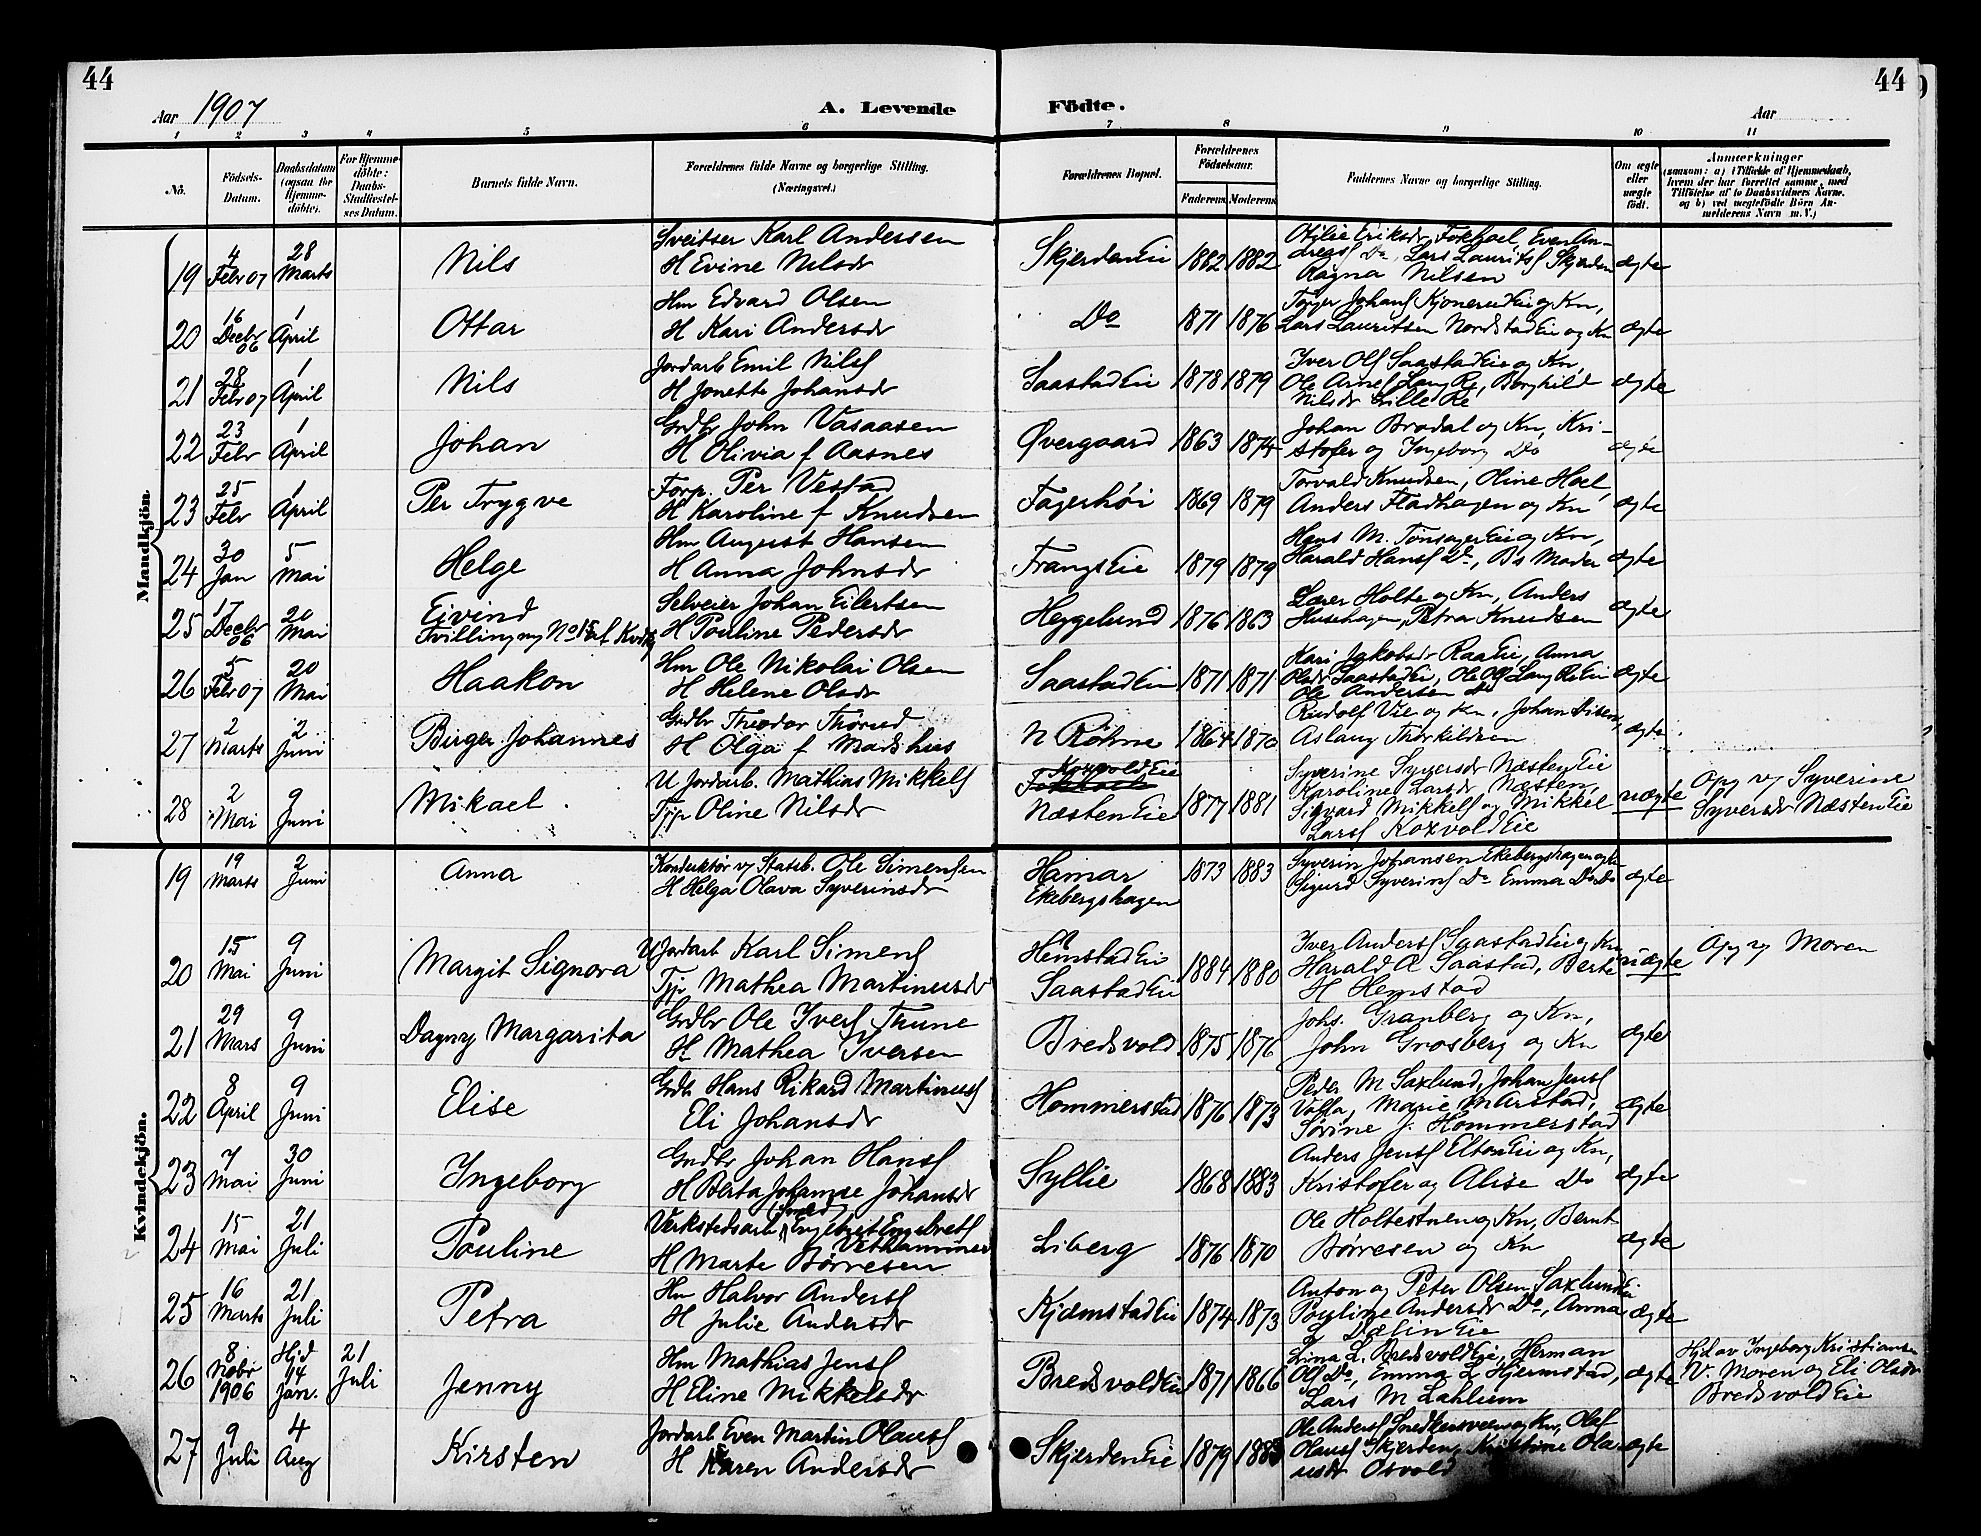 44
44
Aar 1907
A. Levende
Födte.
Aar
1 2 3 4 5 6 7 8 9 10 11
No.
Födsels-Datum.
Daabsdatum (ogsaa for Hjemme-döbte).
For Hjemme-döbte: Daabs-Stadfæstel-ses Datum.
Barnets fulde Navn.
Forældrenes fulde Navne og borgerlige Stilling. (Næringsvei.)
Forældrenes Bopæl.
Forældrenes Födselsaar.
Faderens Moderens
Faddernes Navne og borgerlige Stilling.
Om ægte eller uægte födt.
Anmærkninger (saasom: a) i Tilfælde af Hjemmedaab, hvem der har forrettet samme, med Tilföielse af to Daabsvidners Navne. og b) ved uægtefödte Börn An-melderens Navn m. V.)
Mandkjön.
19 4 Febr 07 28 Marts Nils Sveitser Karl Anderssen
H Evine Nilsdr SkjerdenEie 1882 1882 Otilie Eriksdr Fokhoel, Even An-
dreas Do, Lars Lauritss Skjerden
Ragna Nilsen ægte
20 16 Decbr 06 1 April Ottar Hm Edvard Olsen
H Kari Andersdr Do 1871 1876 Johans KjonerudEie og Kn,
Lars Lauritsen NordstadEie og Kn ægte
21 28 Febr 07 1 April Nils Jordarb Emil Nilss
H Jonette Johansdr SaastadEie 1878 1879 Iver Ols SaastadEie og Kn,
Ole Arnes Lang Re, Borghild
Nilsdr Lille Re ægte
22 23 Febr 1 April Johan Grdbr John Vasaasen
H Olivia f Aasnes Øvergaard 1863 1874 Johan Brodal og Kn, Kri-
stofer og Ingeborg Do ægte
23 25 Febr 1 April Per Trygve Forp. Per Vestad
H Karoline f Knudsen Fagerhöi 1869 1879 Torvald Knudsen, Oline Hoel,
Anders Fladhagen og Kn ægte
24 30 Jan 5 Mai Helge Hm August Hansen
H Anna Johnsdr FrangsEie 1879 1879 Hans M. TönsagerEie og Kn,
Harald Hanss Do, Bs Moder ægte
25 17 Decbr 06 20 Mai Eivind
Tvilling m No 15 af Kvdkj Selveier Johan Eilertsen
H Pouline Pedersdr Heggelund 1876 1863 Lærer Holte og Kn, Anders
Husehagen, Petra Knudsen ægte
26 5 Febr 07 20 Mai Haakon Hm Ole Nikolai Olsen
H Helene Olsdr SaastadEie 1871 1871 Kari Jakobsdr RaaEie, Anna
Olsdr SaastadEie, Ole Ols Lang ReEie
Ole Andersen Do ægte
27 2 Marts 2 Juni Birger Johannes Grdbr Theodor Thorud
H Olga f Madshus N Röhne 1864 1870 Rudolf Vie og Kn, Johan
Aslaug Thorkildsen ægte
28 2 Mai 9 Juni Mikael U Jordarb. Mathias Mikkels
Tjp Oline Nilsdr KoxvoldEie
NæstenEie 1877 1881 Syverine Syversdr NæstenEie
Karoline Larsdr Næsten,
Sigvard Mikkels og Mikkel
Larss KoxvoldEie uægte Opg v Syverine
Syversdr NæstenEie
Kvindekjön.
19 19 Marts 2 Juni Anna Konduktör v Statsb. Ole Simensen
H Helga Olava Syverinsdr Hamar
Ekebergshagen 1873 1883 Syverin Johansen Ekebergshagen og Kn
Sigurd Syverins Do Emma Do Do ægte
20 15 Mai 9 Juni Margit Signora U Jordarb Karl Simens
Tjp Mathea Martinusdr HemstadEie
SaastadEie 1884 1880 Iver Anderss SaastadEie og Kn
Harald A Saastad, Berte
H Hemstad uægte Opg v Moren
21 29 Mars 9 Juni Dagny Margarita Grdbr Ole Iverss Thune
H Mathea Iversen Bredsvold 1875 1876 Johs. Granberg og Kn,
John Grosberg og Kn ægte
22 8 April 9 Juni Elise Grdb Hans Rikard Martinuss
Eli Johansdr Hommerstad 1876 1873 Peder M Saxlund, Johan Jenss
Volla, Marie M Arstad,
Sörine J. Hommerstad ægte
23 7 Mai 30 Juni Ingeborg Grdbr Johan Hanss
H Berta Johanne Johansdr Syllie 1868 1883 Anders Jenss EltonEie og Kn,
Kristofer og Alise Do ægte
24 15 Mai 21 Juli Pouline Verkstedsarb (Smed) Engebret Engebrets
Vethammer
H Marte Börresen Liberg 1876 1870 Ole Holtestuen og Kn, Bernt
Börresen og Kn ægte
25 16 Marts 21 Juli Petra Hm Halvor Anderss
H Julie Andersdr KjæmstadEie 1874 1873 Anton og Peter Olsen SaxlundEie
Pouline Andersdr Do, Anna
L DælinEie ægte
26 8 Nobr 1906 Hjd 14 Jan. 21 Juli Jenny Hm Mathias Jenss
H Eline Mikkelsdr BredsvoldEie 1871 1866 Lina L. BredsvoldEie, Herman
Ols Do, Emma L Hjermstad,
Lars M Lahlum ægte Hjd av Ingeborg Kristiansen
V. Moren og Eli Olsdr
BredsvoldEie
27 9 Juli 4 Aug Kirsten Jordarb Even Martin Olauss
H Karen Andersdr SkjerdenEie 1879 1883 Ole Anderss og Kn, Olaf
Olauss Skjerden, Kristine Ola-
usdr Osvold ægte